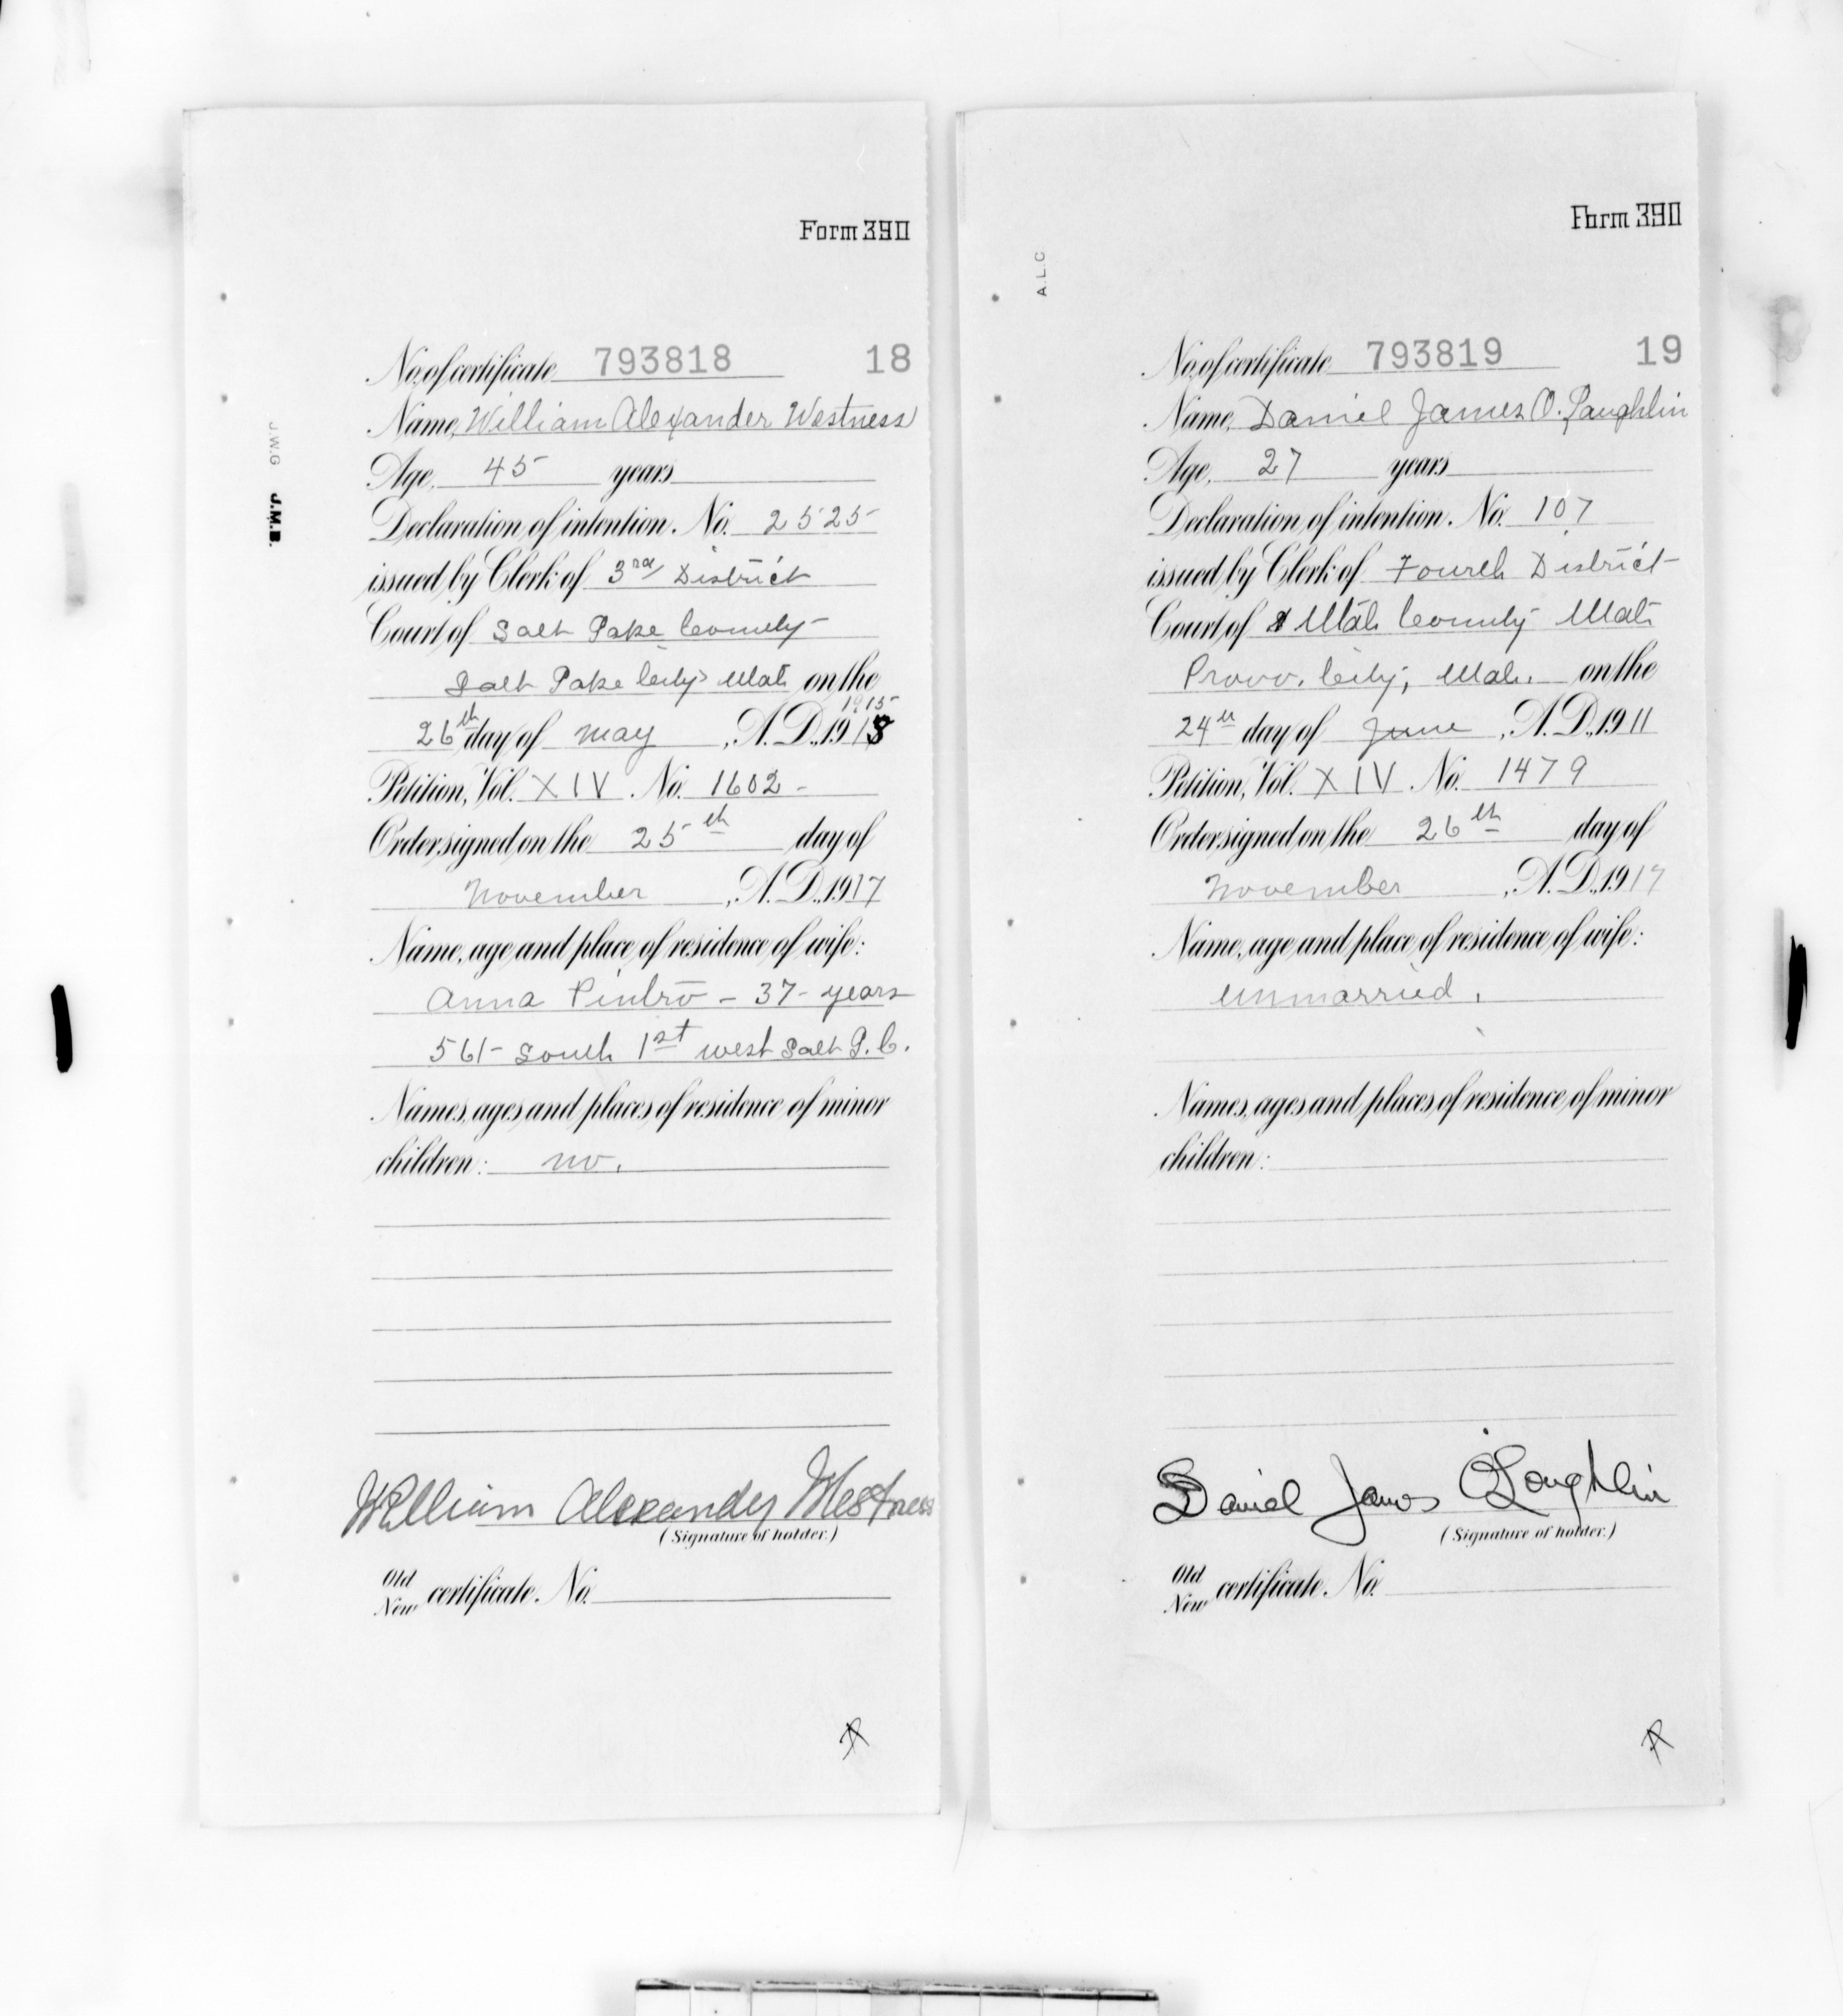 Form 390
J.W.G J.M.B.
No. of certificate 793818 18
Name, William Alexander Westness
Age, 45 years
Declaration of intention, No. 2525
issued by Clerk of 3rd District
Court of Salt Lake County
Salt Lake City Utah on the
1915
26th day of May, A.D., 191
Petition, Vol. XIV. No. 1602 -
Order signed on the 25th day of
November, A.D., 1917
Name, age and place of residence of wife:
Anna - 37 - years
561 - South 1st west Salt L. C.
Names, ages and places of residence of minor
children: no.
William Alexander Westness
(Signature of holder.)
Old
New certificate. No.
Form 390
A.L.C
No. of certificate 793819 19
Name, Daniel James O. Laughlin
Age, 27 years
Declaration of intention, No. 107
issued by Clerk of Fourth District
Court of Utah County Utah
Provo. City, Utah. on the
24th day of June, A.D., 1911
Petition, Vol. XIV. No. 1479
Order signed on the 26th day of
November, A.D., 1917
Name, age and place of residence of wife:
Unmarried.
Names, ages and places of residence of minor
children:
Daniel James O'Loughlin
(Signature of holder.)
Old
New certificate. No.